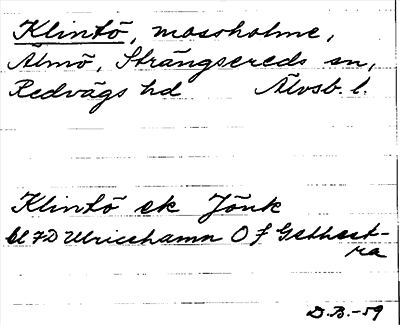 Klintö, mossholme,
Älmö, Strängsereds sn,
Redvägs hd Älvsb. l.
Klintö ek Jönk
bl 7D Ulricehamn O f Gethest-
ra
D.B.-59